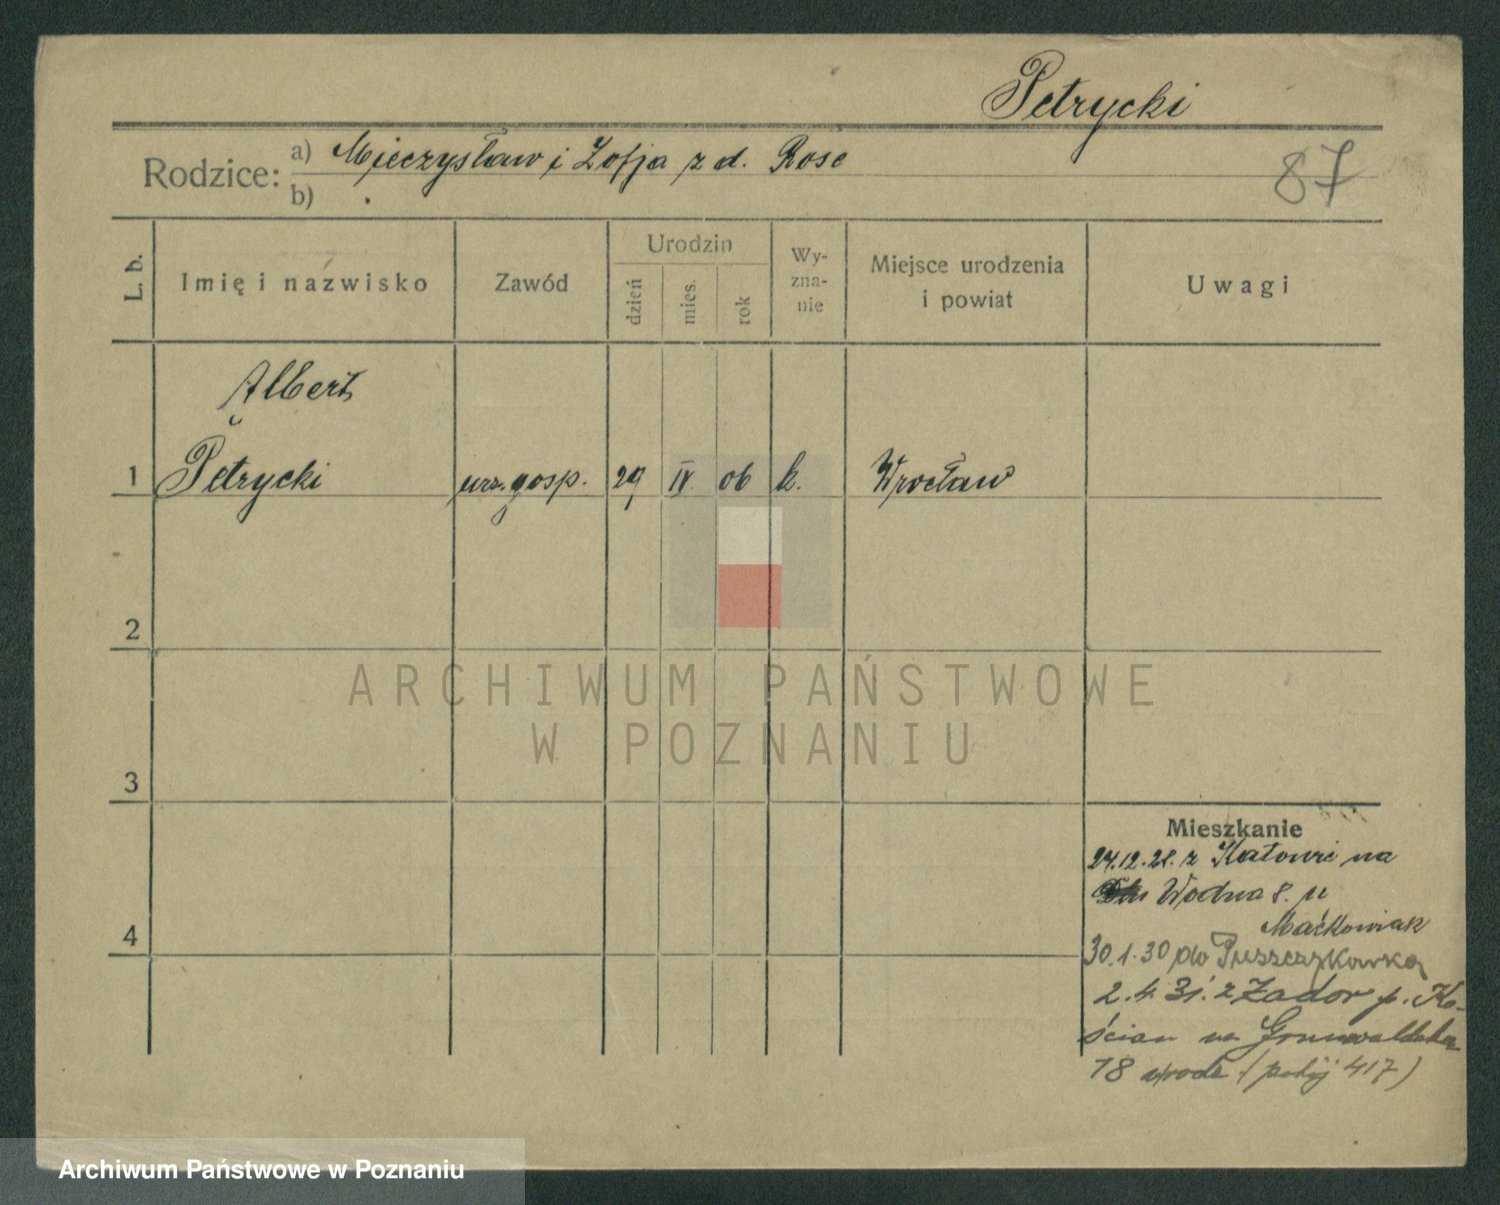 Petrycki
Rodzice: a) Mieczysław i Zofja z d. Rose
b)
87
L. b.
Imię i nazwisko
Zawód
Urodzin
dzień
mies.
rok
Wy-
zna-
nie
Miejsce urodzenia
i powiat
Uwagi
Albert
1 Petrycki urz. gosp. 29 IV. 06 k. Wrocław
2
3
4
Mieszkanie
24.12.28. z Katowic na
Wodna 8. u
Maćkowiak
30.1.30 do Puszczykowka
2.4.31. z Żador p. Ko-
ścian na Grunwaldzka
18 (pokój 417)
ARCHIWUM PAŃSTWOWE
W POZNANIU
Archiwum Państwowe w Poznaniu